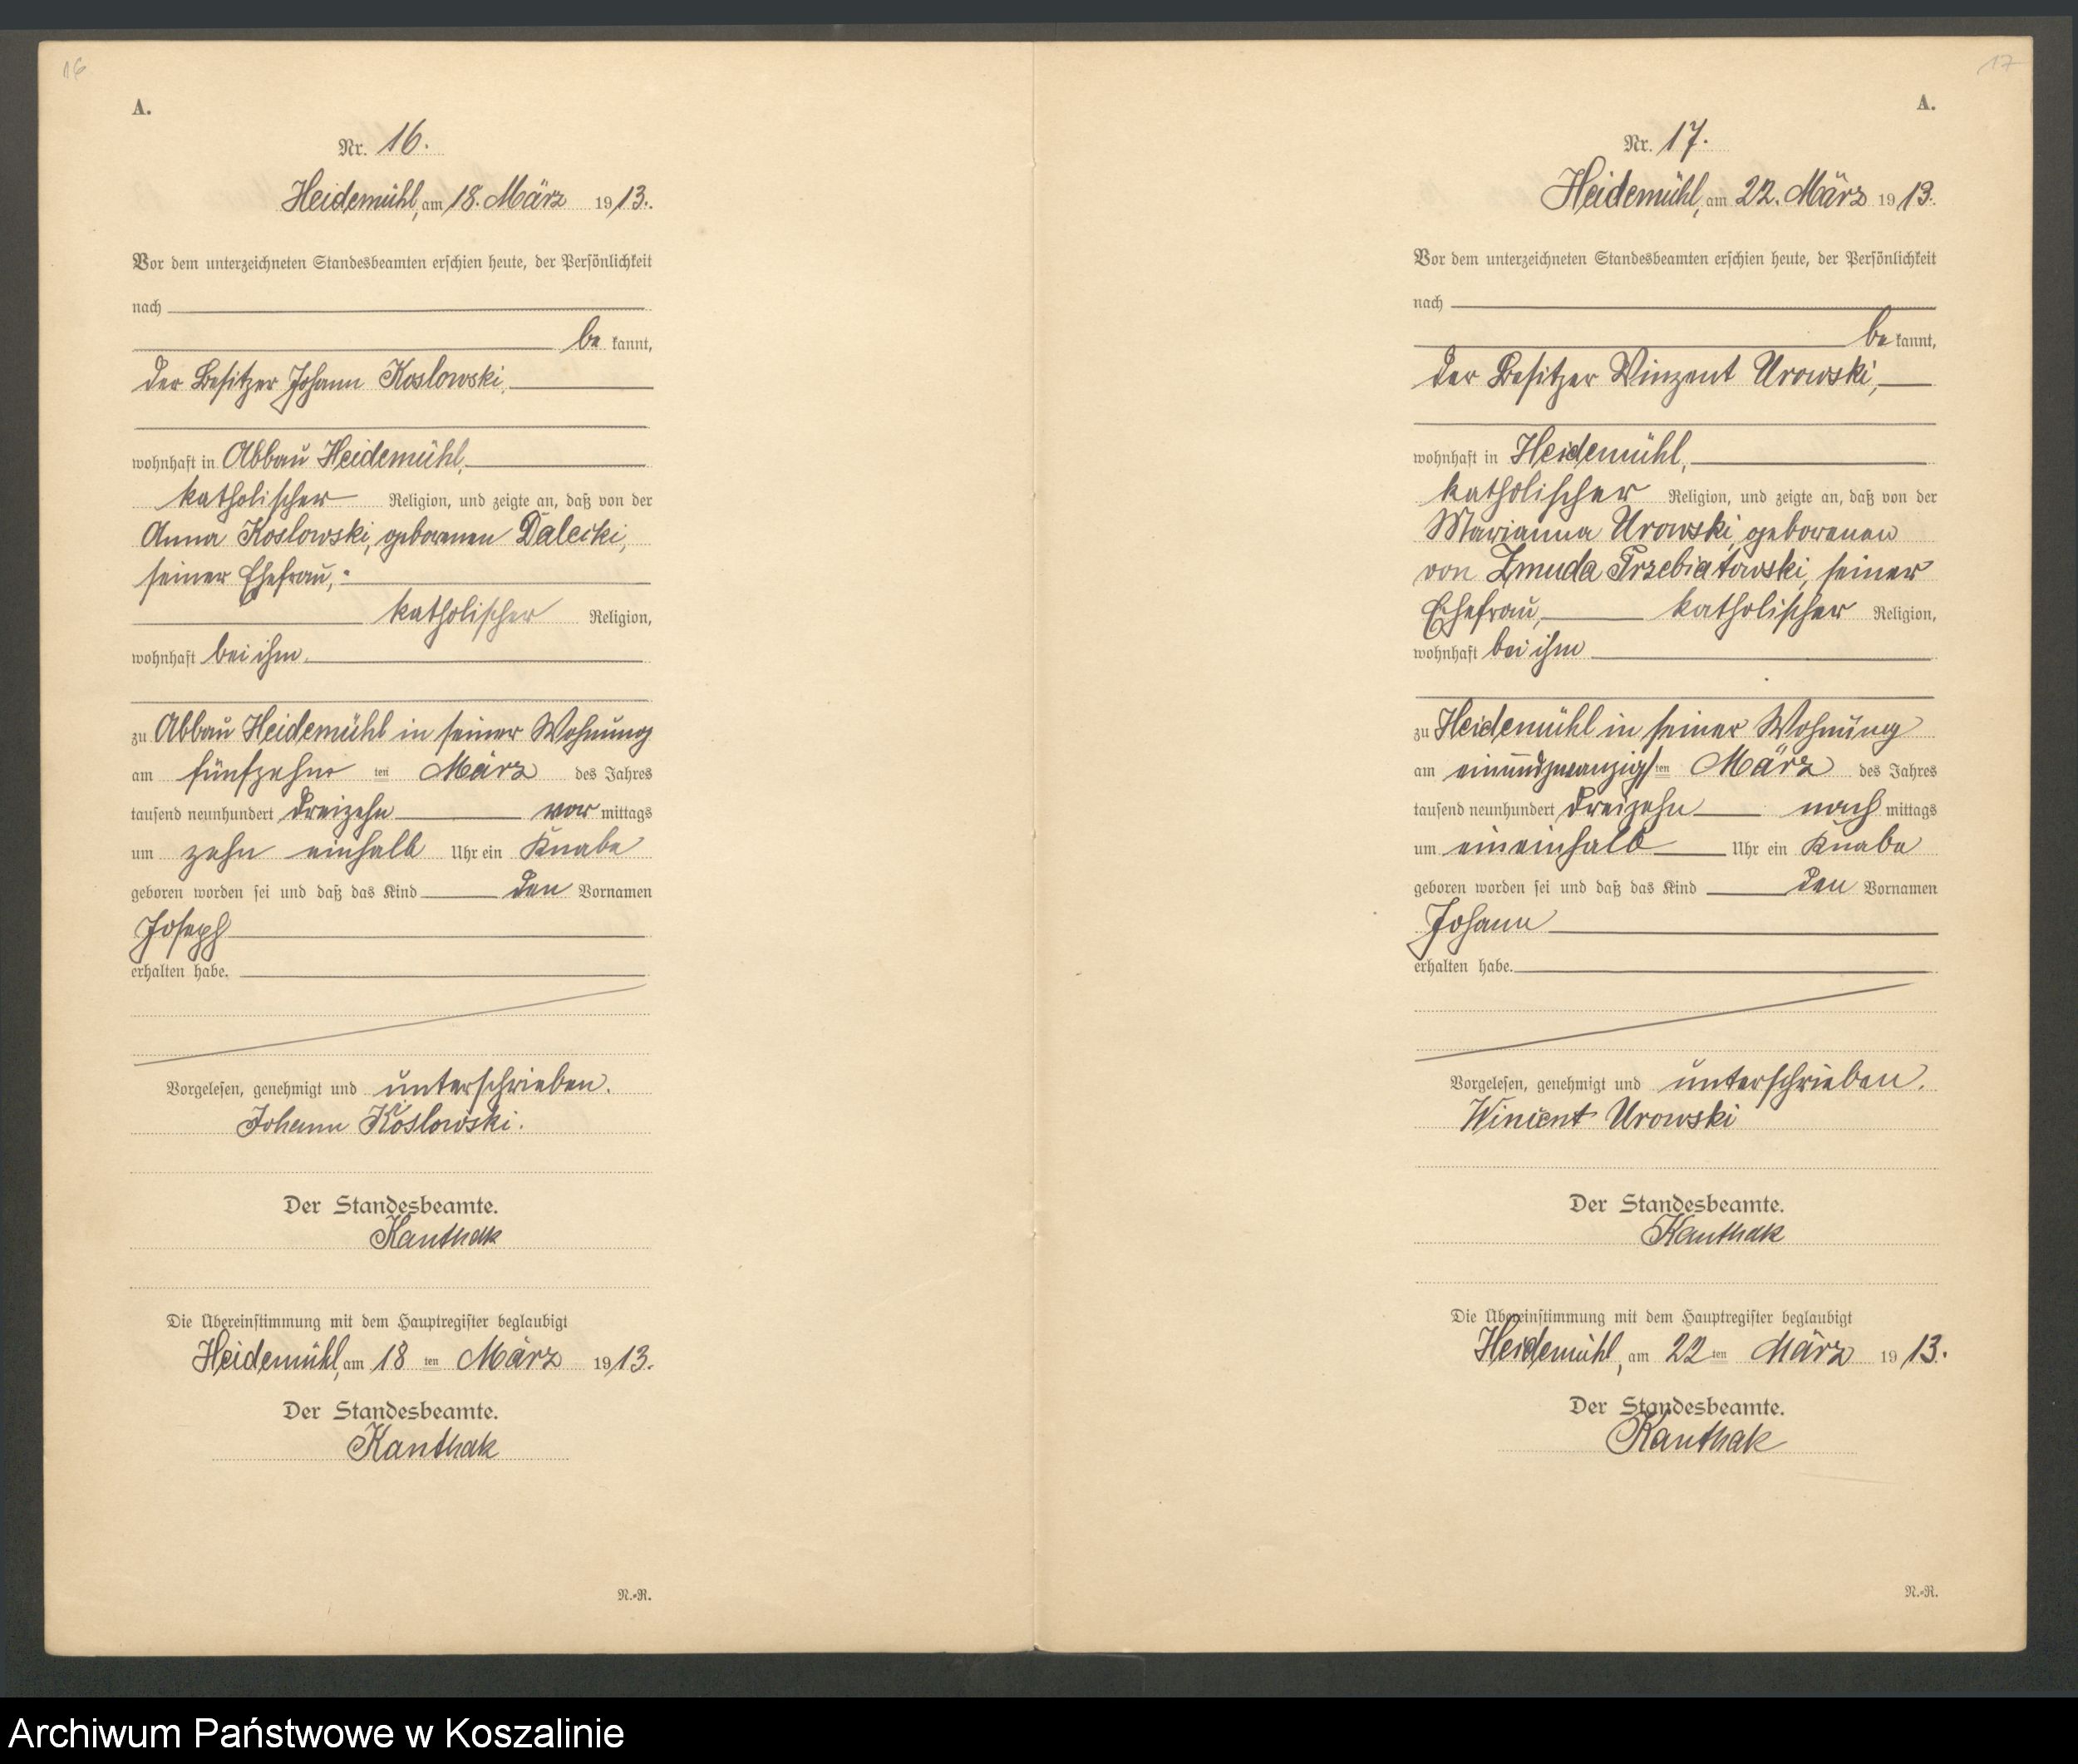 16
A.
Nr. 16.
Heidemühl, am 18. März 1913.
Vor dem unterzeichneten Standesbeamten erschien heute, der Persönlichkeit
nach
be kannt,
der Besitzer Johann Koslowski,
wohnhaft in Abbau Heidemühl,
katholischer Religion, und zeigte an, daß von der
Anna Koslowski, geborenen Dalecki,
seiner Ehefrau,
katholischer Religion,
wohnhaft bei ihm
zu Abbau Heidemühl in seiner Wohnung
am fünfzehn ten März des Jahres
tausend neunhundert dreizehn vor mittags
um zehn einhalb Uhr ein Knabe
geboren worden sei und daß das Kind den Vornamen
Joseph
erhalten habe.
Vorgelesen, genehmigt und unterschrieben.
Johann Koslowski.
Der Standesbeamte.
Kanthak
Die Übereinstimmung mit dem Hauptregister beglaubigt
Heidemühl, am 18 ten März 1913.
Der Standesbeamte.
Kanthak
N.-R.
17
A.
Nr. 17.
Heidemühl, am 22. März 1913.
Vor dem unterzeichneten Standesbeamten erschien heute, der Persönlichkeit
nach
be kannt,
der Besitzer Vinzent Urowski,
wohnhaft in Heidemühl,
katholischer Religion, und zeigte an, daß von der
Marianna Urowski, geborenen
von Zmuda Trzebiatowski, seiner
Ehefrau, katholischer Religion,
wohnhaft bei ihm
zu Heidemühl in seiner Wohnung
am einundzwanzigs ten März des Jahres
tausend neunhundert dreizehn nach mittags
um ein einhalb Uhr ein Knabe
geboren worden sei und daß das Kind den Vornamen
Johann
erhalten habe.
Vorgelesen, genehmigt und unterschrieben.
Wincent Urowski
Der Standesbeamte.
Kanthak
Die Übereinstimmung mit dem Hauptregister beglaubigt
Heidemühl, am 22 ten März 1913.
Der Standesbeamte.
Kanthak
N.-R.
Archiwum Państwowe w Koszalinie